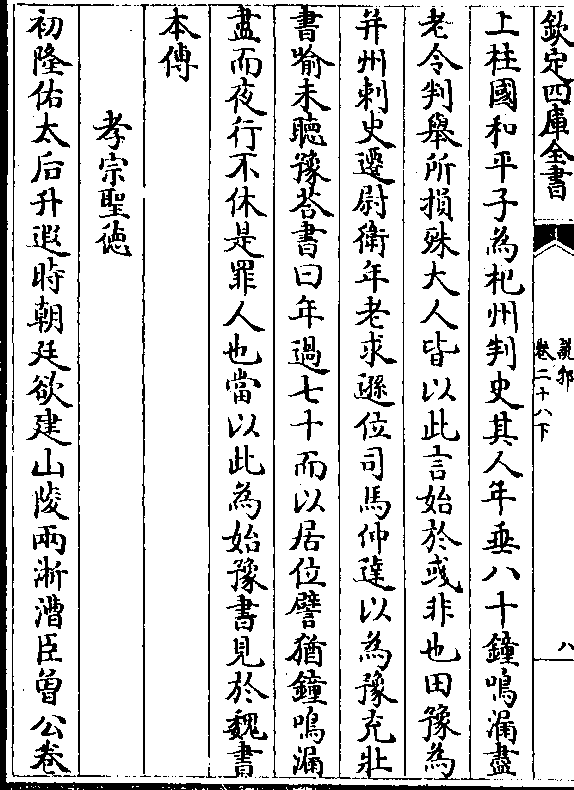 欽定四庫全書
說郛
卷二十八下
八
上柱國和平子為杞州判史其人年垂八十鐘鳴漏盡
老令判舉所損殊大人皆以此言始於彧非也田豫為
并州刺史遷尉衛年老求遜位司馬仲達以為豫克壯
書喻未聽豫荅書曰年過七十而以居位譬猶鐘鳴漏
盡而夜行不休是罪人也當以此為始豫書見於魏書
本傳
孝宗聖徳
初隆佑太后升遐時朝廷欲建山陵兩浙漕臣曽公卷